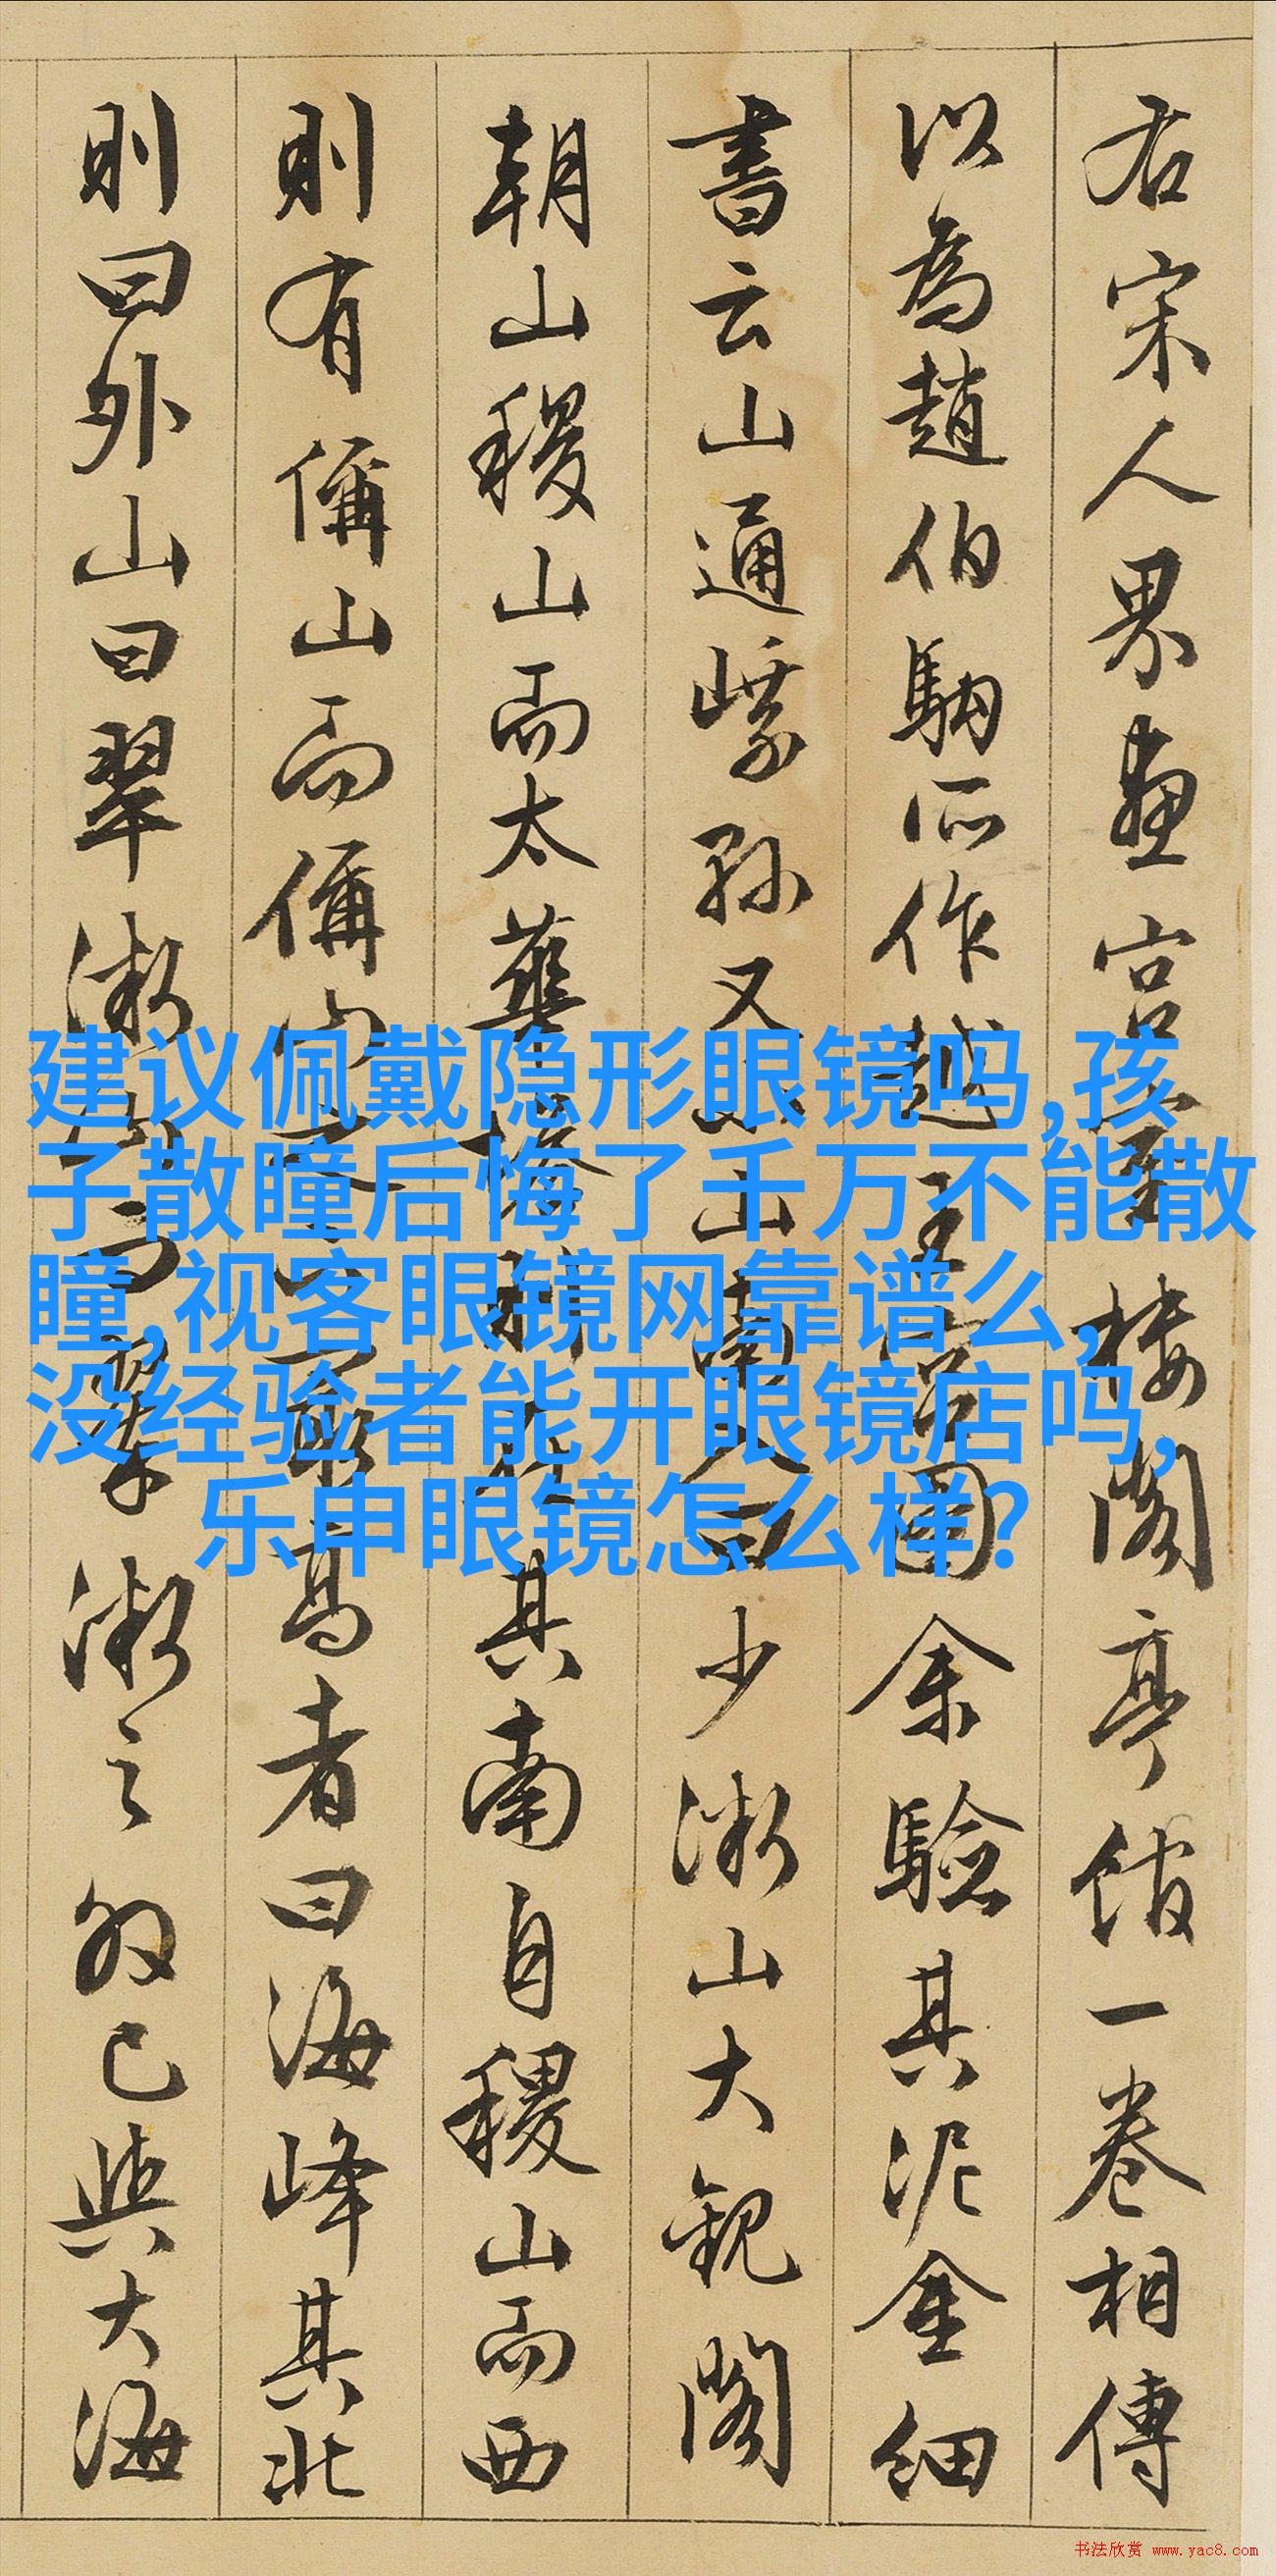 右宋人界畫宮室樓閣亭館一卷相傳
以為趙伯駒所作越王宮圖余驗其泥金細
書云山通 孫又 山南人曰少漱山大觀閣
朝山稷山而太華 其南自稷山而西
則有偁山而偁山 高者曰海峰其北
則曰外山曰翠漱 翠漱之 已與大海
建议佩戴隐形眼镜吗,孩
子散瞳后悔了千万不能散
瞳,视客眼镜网靠谱么,
没经验者能开眼镜店吗,
乐申眼镜怎么样?
书法欣赏 www.yac8.com